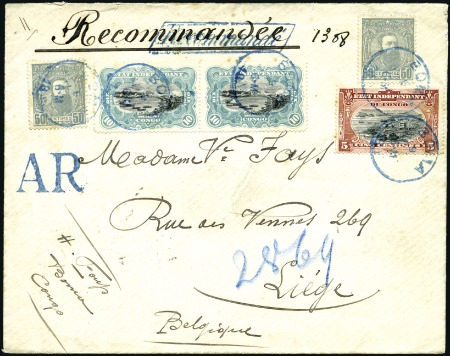 Recommandée 1308
ETAT INDEPENDANT
DU CONGO
10 10
ETAT INDEPENDANT
DU CONGO
10 10
ETAT INDEPENDANT
DU CONGO
5 CINQ CENTIMES 5
50 50
50 50
AR
Madame Ve Fays
Rue des Vennes 269
2869
Liége
Belgique
Boma
Congo